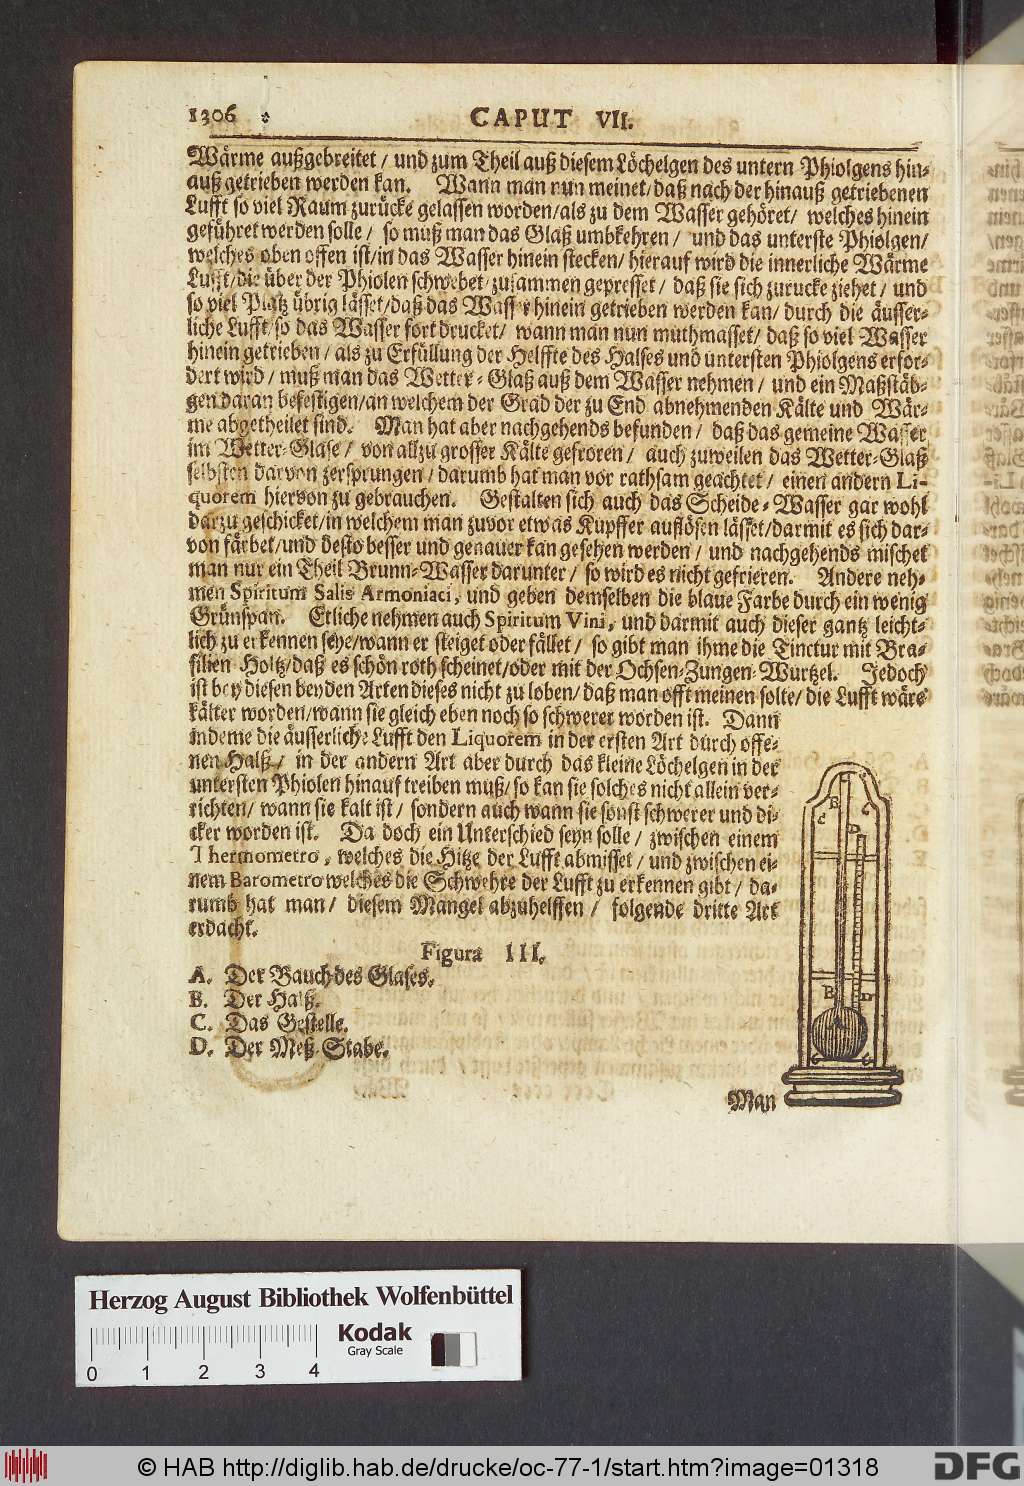 1306 CAPUT VII.
Wärme außgebreitet / und zum Theil auß diesem Löchelgen des untern Phiolgens hin-
auß getrieben werden kan. Wann man nun meinet / daß nach der hinauß getriebenen
Lufft so viel Raum zurücke gelassen worden / als zu dem Wasser gehöret / welches hinein
geführet werden solle / so muß man das Glaß umbkehren / und das unterste Phiolgen /
welches oben offen ist / in das Wasser hinein stecken / hierauf wird die innerliche Wärme
Lufft / die über der Phiolen schwebet / zusammen gepresset / daß sie sich zurucke ziehet / und
so viel Platz übrig lässet / daß das Wasser hinein getrieben werden kan / durch die äusser-
liche Lufft / so das Wasser fort drucket / wann man nun muthmasset / daß so viel Wasser
hinein getrieben / als zu Erfüllung der Helffte des Halses und untersten Phiolgens erfor-
dert wird / muß man das Wetter-Glaß auß dem Wasser nehmen / und ein Maßstäb-
gen daran befestigen / an welchem der Grad der zu End abnehmenden Kälte und Wär-
me abgetheilet sind. Man hat aber nachgehends befunden / daß das gemeine Wasser
im Wetter-Glase / von allzu grosser Kälte gefroren / auch zuweilen das Wetter-Glaß
selbsten darvon zersprungen / darumb hat man vor rathsam geachtet / einen andern Li-
quorem hiervon zu gebrauchen. Gestalten sich auch das Scheide-Wasser gar wohl
darzu geschicket / in welchem man zuvor etwas Kupffer auflösen lässet / darmit es sich dar-
von färbet / und desto besser und genauer kan gesehen werden / und nachgehends mischet
man nur ein Theil Brunn-Wasser darunter / so wird es nicht gefrieren. Andere neh-
men Spiritum Salis Armoniaci, und geben demselben die blaue Farbe durch ein wenig
Grünspan. Etliche nehmen auch Spiritum Vini, und darmit auch dieser gantz leicht-
lich zu erkennen seye / wann er steiget oder fället / so gibt man ihme die Tinctur mit Bra-
silien Holtz / daß es schön roth scheinet / oder mit der Ochsen-Zungen-Wurtzel. Jedoch
ist bey diesen beyden Arten dieses nicht zu loben / daß man offt meinen solte / die Lufft wäre
kälter worden / wann sie gleich eben noch so schwerer worden ist. Dann
indeme die äusserliche Lufft den Liquorem in der ersten Art durch offe-
nen Halß / in der andern Art aber durch das kleine Löchelgen in der
untersten Phiolen hinauf treiben muß / so kan sie solches nicht allein ver-
richten / wann sie kalt ist / sondern auch wann sie sonst schwerer und di-
cker worden ist. Da doch ein Unterschied seyn solle / zwischen einem
Thermometro, welches die Hitze der Lufft abmisset / und zwischen ei-
nem Barometro welches die Schwehre der Lufft zu erkennen gibt / da-
rumb hat man / diesem Mangel abzuhelffen / folgende dritte Art
erdacht.
Figura III.
A. Der Bauch des Glases.
B. Der Halß.
C. Das Gestelle.
D. Der Meß-Stabe.
C B D
B D
A
C C
Man
Herzog August Bibliothek Wolfenbüttel
Kodak
Gray Scale
0 1 2 3 4
© HAB http://diglib.hab.de/drucke/oc-77-1/start.htm?image=01318
DFG